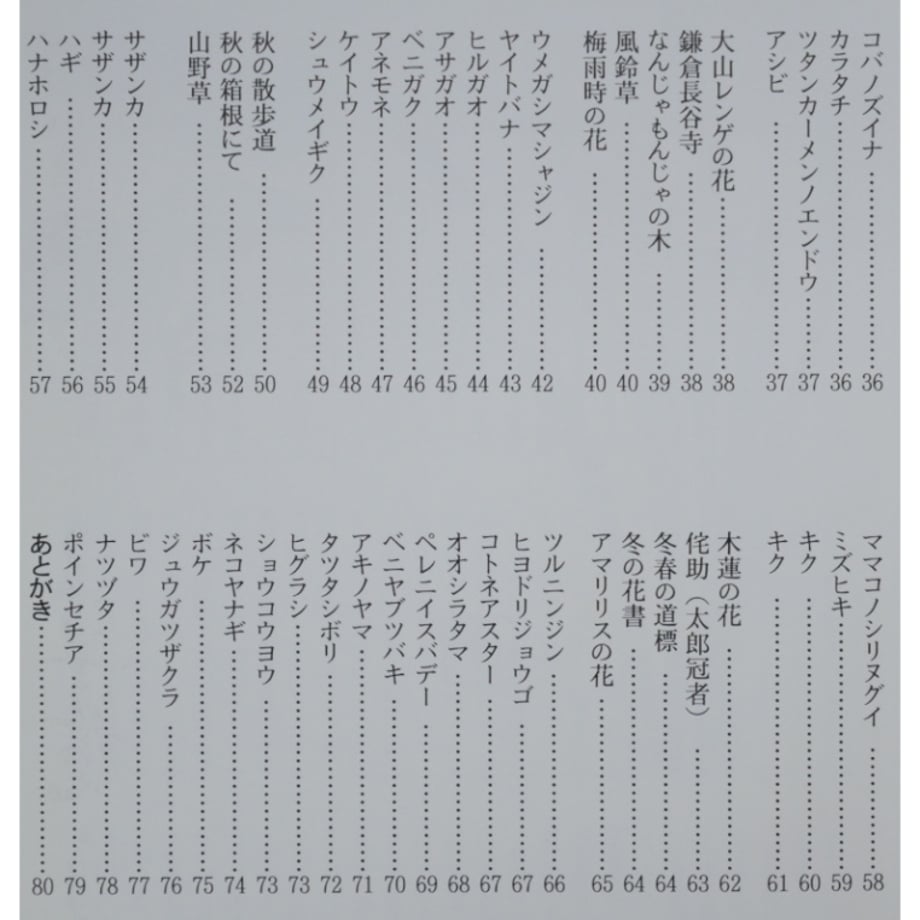 コバノズイナ…………………36
カラタチ…………………36
ツタンカーメンノエンドウ…………………37
アシビ…………………37
大山レンゲの花…………………38
鎌倉長谷寺…………………38
なんじゃもんじゃの木…………………39
風鈴草…………………40
梅雨時の花…………………40
ウメガシマシャジン…………………42
ヤイトバナ…………………43
ヒルガオ…………………44
アサガオ…………………45
ベニガク…………………46
アネモネ…………………47
ケイトウ…………………48
シュウメイギク…………………49
秋の散歩道…………………50
秋の箱根にて…………………52
山野草…………………53
サザンカ…………………54
サザンカ…………………55
ハギ…………………56
ハナホロシ…………………57
ママコノシリヌグイ…………………58
ミズヒキ…………………59
キク…………………60
キク…………………61
木蓮の花…………………62
侘助（太郎冠者）…………………63
冬春の道標…………………64
冬の花書…………………64
アマリリスの花…………………65
ツルニンジン…………………66
ヒヨドリジョウゴ…………………67
コトネアスター…………………67
オオシラタマ…………………68
ペレニイスバデー…………………69
ベニヤブツバキ…………………70
アキノヤマ…………………71
タツタシボリ…………………72
ヒグラシ…………………73
ショウコウヨウ…………………73
ネコヤナギ…………………74
ボケ…………………75
ジュウガツザクラ…………………76
ビワ…………………77
ナツヅタ…………………78
ポインセチア…………………79
あとがき…………………80